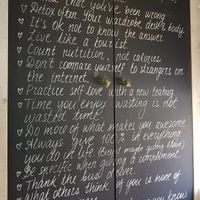 that you've been wrong.
Detox often. Your wardrobe desk & body.
It's ok not to know the answer.
Live like a tourist
Count nutrition, not calories
Don't compare yourself to strangers on
the internet.
Practice self love with a new teabag.
Time you enjoy wasting is not
wasted time.
Do more of what makes you awesome
Always give 100% of everything
you do in life. (Except maybe giving blood)
Be specific when giving a compliment.
Thank the bus driver.
What others think of you is none of
you know